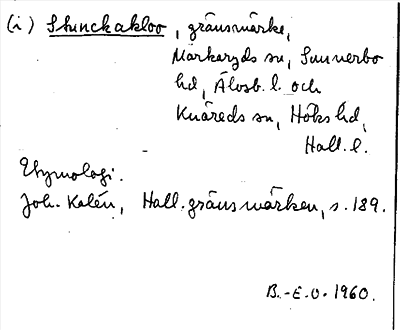 (i) Stunckakloo, gränsmärke,
Markaryds sn, Sunnerbo
hd, Älvsb. l. och
Knäreds sn, Höks hd,
Hall. l.
Etymologi.
Joh. Kalén, Hall. gränsmärken, s. 189.
B.-E.O. 1960.